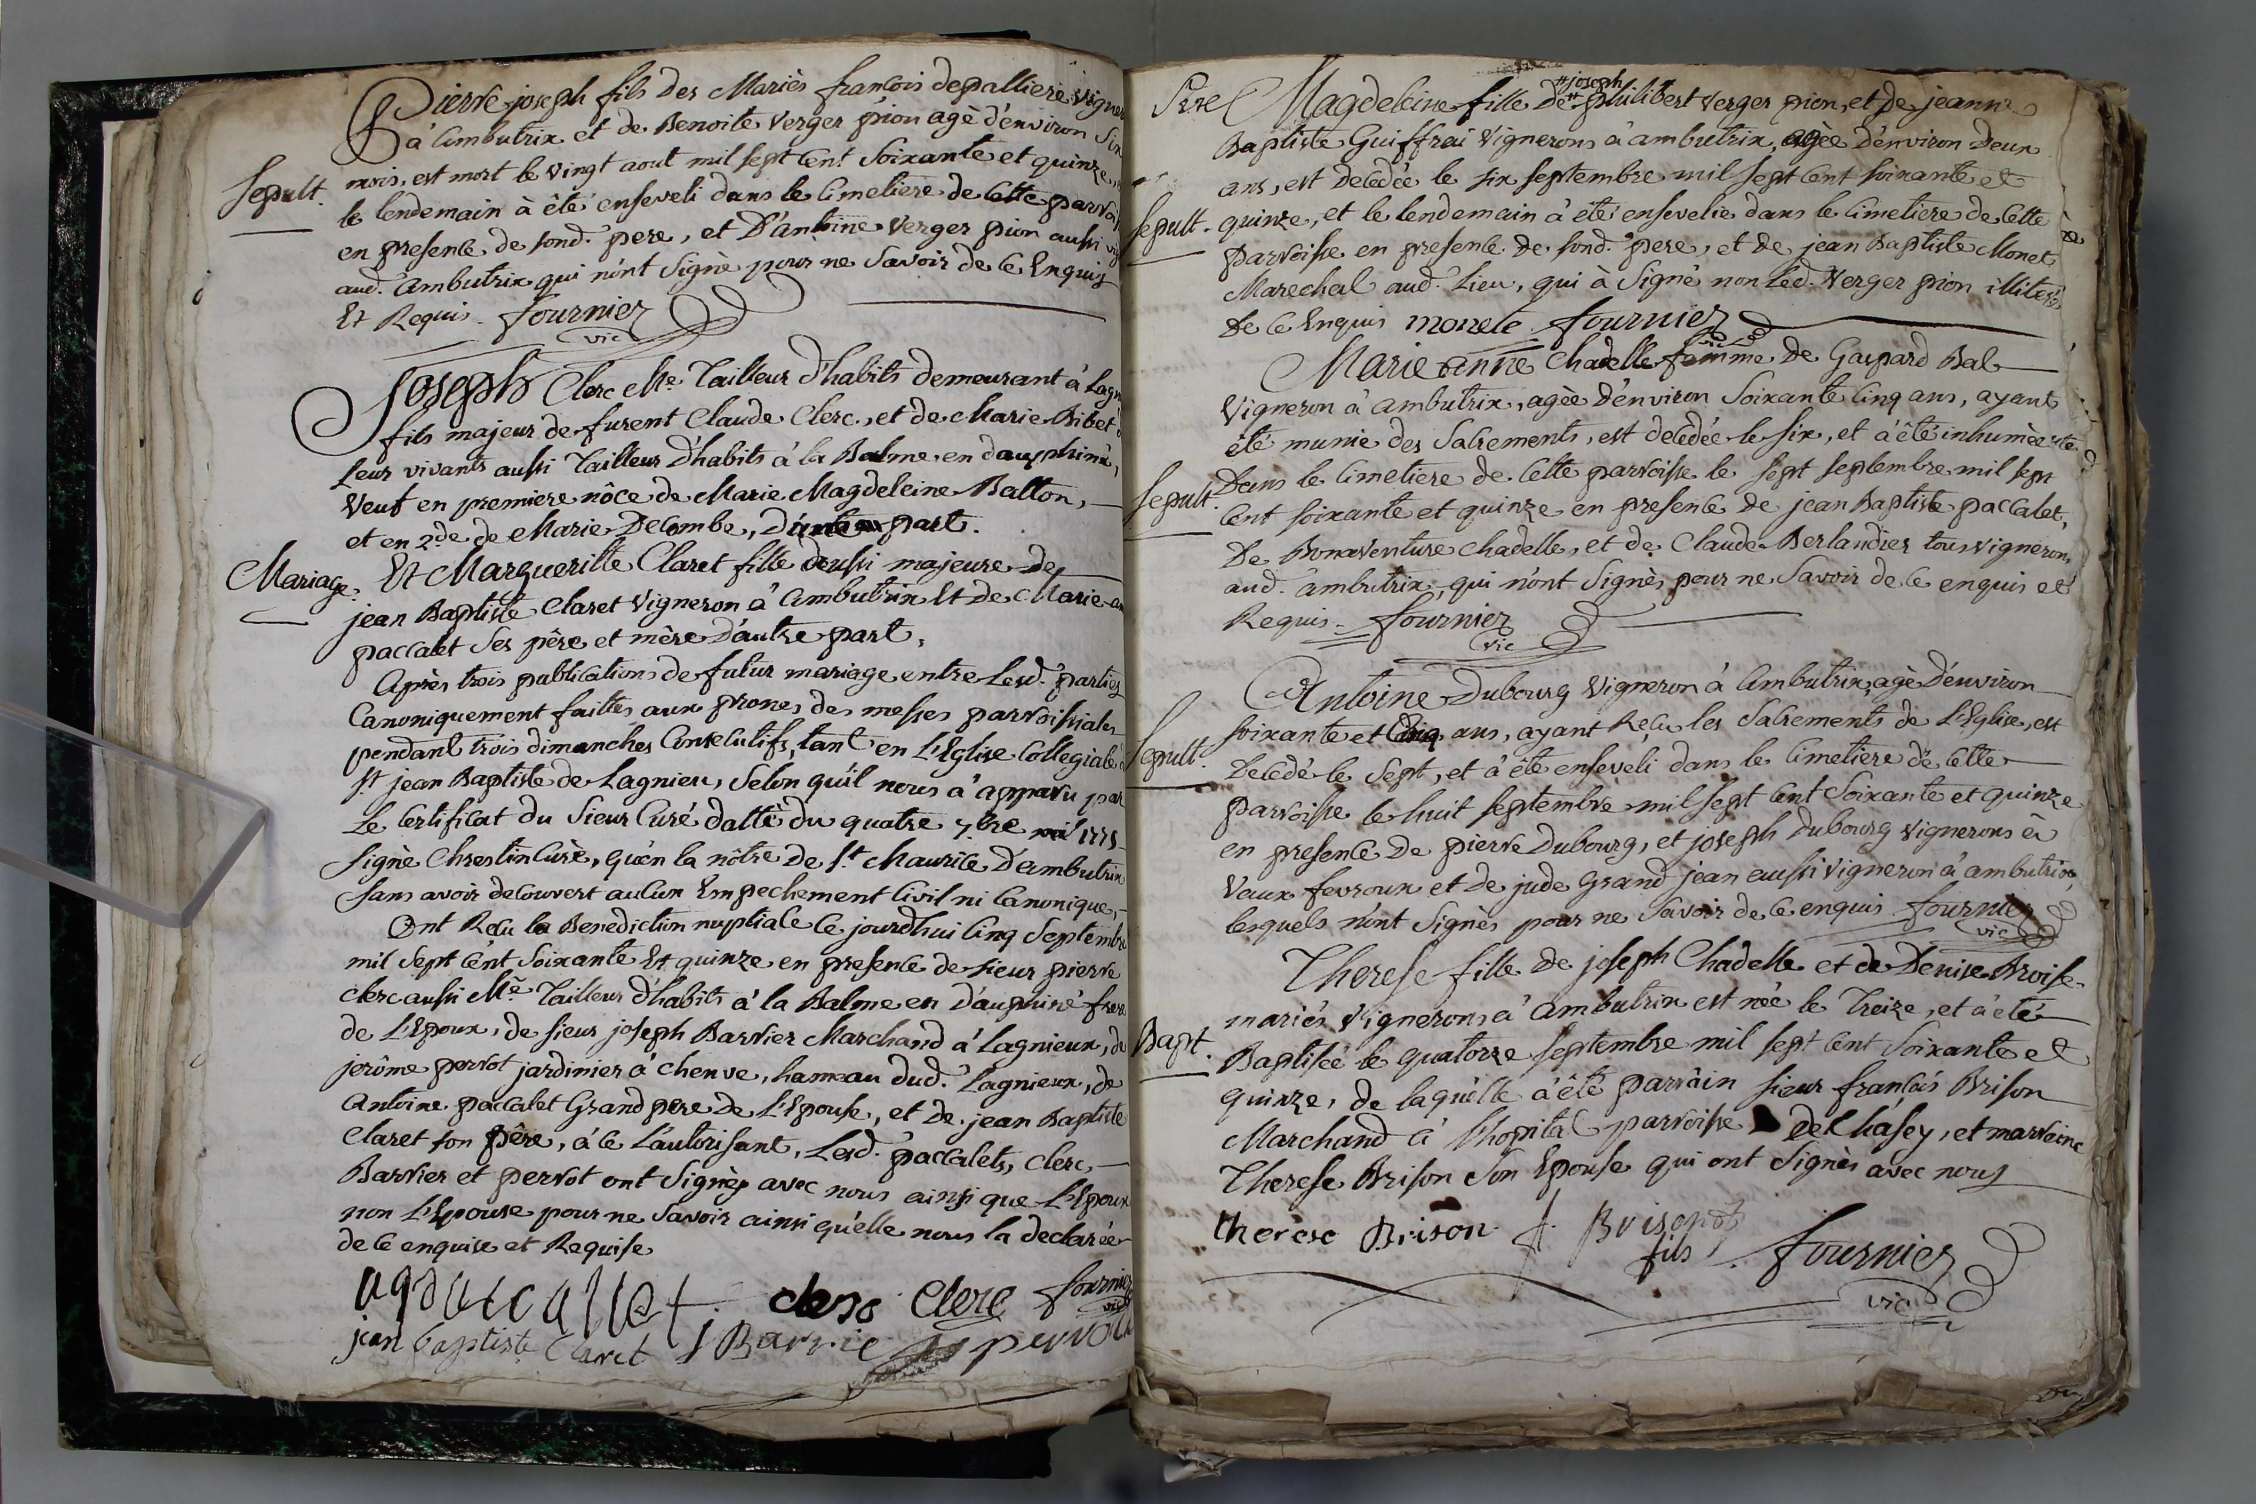 Pierre joseph fils des Mariès francois depalliere vigner
à ambutrix et de Benoite Verger pion agè d'environ Six
mois, est mort le vingt aout mil sept Cent Soixante et quinze
Sepult.
le lendemain à êté enseveli dans le Cimetiere de Cette parroi
en presence de sond. pere, et D'antoine Verger pion aussi vig
aud. ambutrix qui n'ont Signè pour ne Savoir de Ce Enquis
Et Requis. fournier
vic
Joseph Clerc Me. Tailleur d'habits demeurant à Lagn
fils majeur de furent Claude Clerc, et de Marie Bibet
Leur vivants aussi Tailleur d'habits à la Balme en dauphiné,
Veuf en premiere nôce de Marie Magdeleine Batton,
et en 2de. de Marie Decombe, D'une part.
Mariage.
Et Margueritte Claret fille aussi majeure de
jean Baptiste Claret Vigneron à Ambutrix Et de Marie an
paccalet Ses père et mère D'autre part,
Après trois publications de futur mariage entre Lesd. parties
Canoniquement faittes aux prones des messes parroissiales
pendant trois dimanches Consecutifs, tant en L'Eglise Collegiale
St. jean Baptiste de Lagnieu, Selon qu'il nous à apparu par
Le Certificat du Sieur Curé dattè du quatre 7bre 1775
Signè Chrestin Curè, qu'en la nôtre de St. Maurice D'ambutrix
Sans avoir decouvert aucun Empechement Civil ni Canonique,
Ont Reçu la Benediction nuptiale Ce jourd'hui Cinq Septembre
mil Sept Cent Soixante Et quinze en presence de Sieur pierre
Clerc aussi Me. Tailleur d'habits à la Balme en D'auphiné frere
de L'Epoux, de Sieur joseph Barrier Marchand à Lagnieux, de
jerôme perrot jardinier à Chenve, hameau dud. Lagnieux, de
Antoine paccalet Grand pere de L'Epouse, et de jean Baptiste
Claret son Père, à Ce L'autorisant, Lesd. paccalets, Clerc,
Barrier et perrot ont Signès avec nous ainsi que L'Epoux
non L'Epouse pour ne Savoir ainsi qu'elle nous la declarée
de Ce enquise et Requise
Clerc fournier
vic
jean baptiste Claret J Barrie perrot
Magdeleine fille De # joseph # philibert Verger pion, et de jeanne
Baptiste Guiffrai Vignerons à ambutrix, agèe D'environ Deux
ans, est Decedée le six septembre mil Sept Cent soixante et
Sepult.
quinze, et le lendemain à été ensevelie dans le Cimetiere de Cette
parroisse en presence de sond. pere, et de jean Baptiste Monet
Marechal aud. Lieu, qui à Signé non Led. Verger pion illiteré
de Ce Enquis monete fournier
vic
Marie anne Chadelle femme de Gaspard Bal
Vigneron à ambutrix, agèe D'environ Soixante Cinq ans, ayant
été munie des Sacrements, est decedée le six, et à êté inhumèe
Sepult.
Dans le Cimetiere de Cette parroisse le sept septembre mil sept
Cent soixante et quinze en presence de jean Baptiste paccalet,
De Bonaventure Chadelle, et de Claude Berlandier tous vignerons
aud. ambutrix, qui n'ont Signès pour ne Savoir de Ce enquis et
Requis. fournier
vic
Antoine Dubourg Vigneron à Ambutrix, agè D'environ
soixante et Cinq ans, ayant Reçu les Sacrements de L'Eglise, est
Sepult.
Decedé le Sept, et à êté enseveli dans le Cimetiere de Cette
parroisse le huit septembre mil sept Cent Soixante et quinze
en presence de pierre Dubourg, et joseph Dubourg Vignerons à
Vaux fevroux et de jude Grand jean aussi Vigneron à ambutrix,
lesquels n'ont Signès pour ne Savoir de Ce enquis fournier
vic
Therese fille de joseph Chadelle et de Denise Broise
mariés Vignerons à Ambutrix est née le Treize, et à été
Bapt.
Baptisée le quatorze septembre mil sept Cent Soixante et
quinze, de laquelle à êté parrain sieur francois Brison
Marchand à l'hopital parroisse de Chasey, et marreine
Therese Brison Son Epouse qui ont Signès avec nous
therese Brison
fils fournier
vic